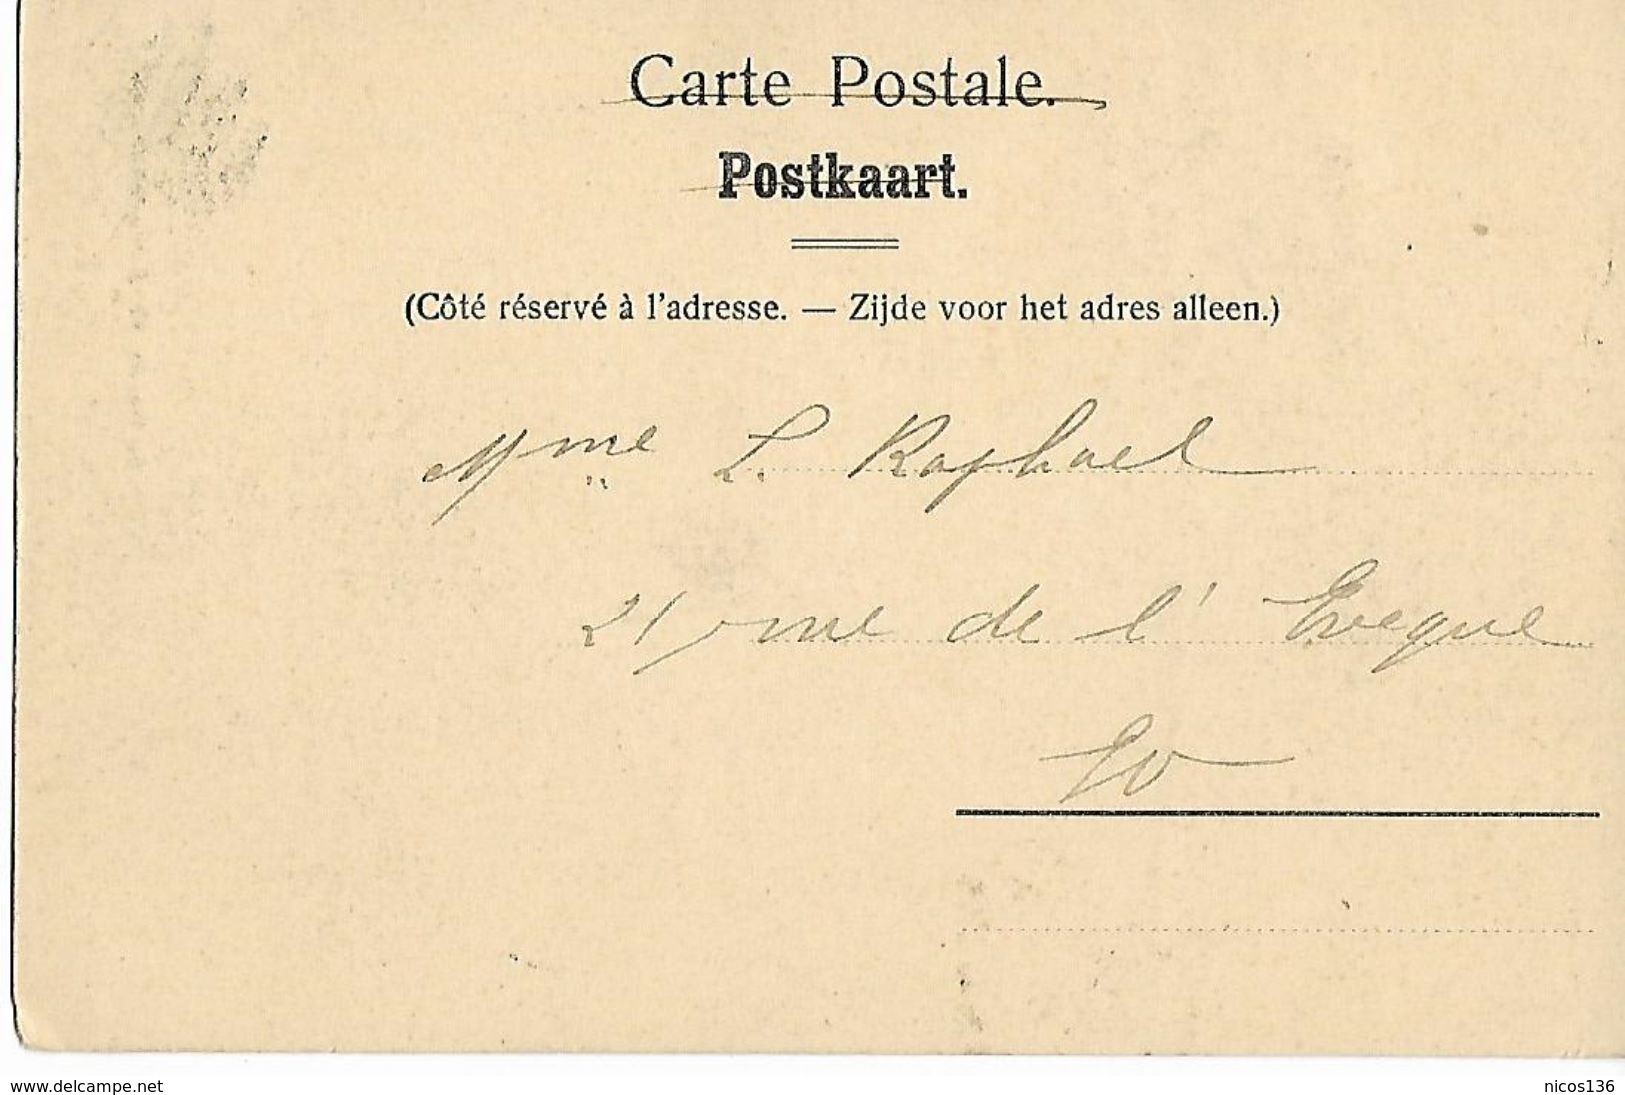 Carte Postale.
Postkaart.
(Côté réservé à l'adresse. — Zijde voor het adres alleen.)
Mme L. Raphael
21, rue de l' Eveque
EV
www.delcampe.net
nicos136